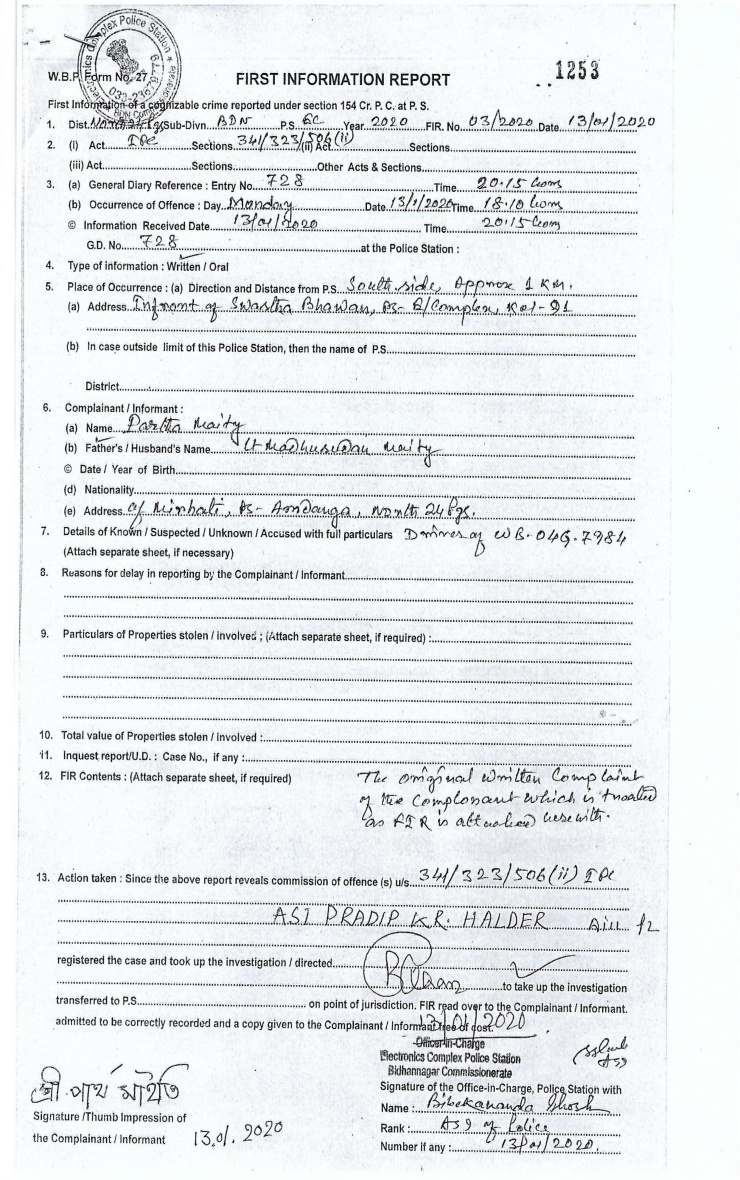 Electronics Complex Police Station
033-236
BDN Comm
W.B.P. Form No. 27
FIRST INFORMATION REPORT
1253
First Information of a cognizable crime reported under section 154 Cr. P. C. at P. S.
1. Dist. North 24 Pgs Sub-Divn. BDN P.S. EC Year 2020 FIR. No. 03/2020 Date 13/01/2020
2. (i) Act IPC Sections 341/323/506(ii) (ii) Act Sections
(iii) Act Sections Other Acts & Sections
3. (a) General Diary Reference : Entry No. 728 Time 20.15 hrs
(b) Occurrence of Offence : Day Monday Date 13/1/2020 Time 18.10 hrs
© Information Received Date 13/01/2020 Time 20.15 hrs
G.D. No. 728 at the Police Station :
4. Type of information : Written / Oral
5. Place of Occurrence : (a) Direction and Distance from P.S. South side, Approx 1 KM.
(a) Address Infront of Swastha Bhawan, PS- E/Complex, Kol-91
(b) In case outside limit of this Police Station, then the name of P.S.
District
6. Complainant / Informant :
(a) Name Partha Maity
(b) Father's / Husband's Name Lt Madhusudan Maity
© Date / Year of Birth
(d) Nationality
(e) Address of Minhati, PS- Amdanga, North 24 Pgs.
7. Details of Known / Suspected / Unknown / Accused with full particulars Driver of WB-04G-7984
(Attach separate sheet, if necessary)
8. Reasons for delay in reporting by the Complainant / Informant
9. Particulars of Properties stolen / involved ; (Attach separate sheet, if required) :
10. Total value of Properties stolen / involved :
11. Inquest report/U.D. : Case No., if any :
12. FIR Contents : (Attach separate sheet, if required) The original written Complaint
of the Complonant which is treated
as FIR is attached herewith.
13. Action taken : Since the above report reveals commission of offence (s) u/s. 341/323/506(ii) IPC
ASI PRADIP KR. HALDER
registered the case and took up the investigation / directed
to take up the investigation
transferred to P.S. on point of jurisdiction. FIR read over to the Complainant / Informant.
admitted to be correctly recorded and a copy given to the Complainant / Informant free of cost.
13/01/2020
Officer-in-Charge
Electronics Complex Police Station
Bidhannagar Commissionerate
Signature of the Office-in-Charge, Police Station with
Name : Bibekananda Ghosh
Rank : ASI of Police
Number if any : 13/01/2020.
শ্রী পার্থ মাইতি
Signature /Thumb Impression of
the Complainant / Informant 13.01.2020